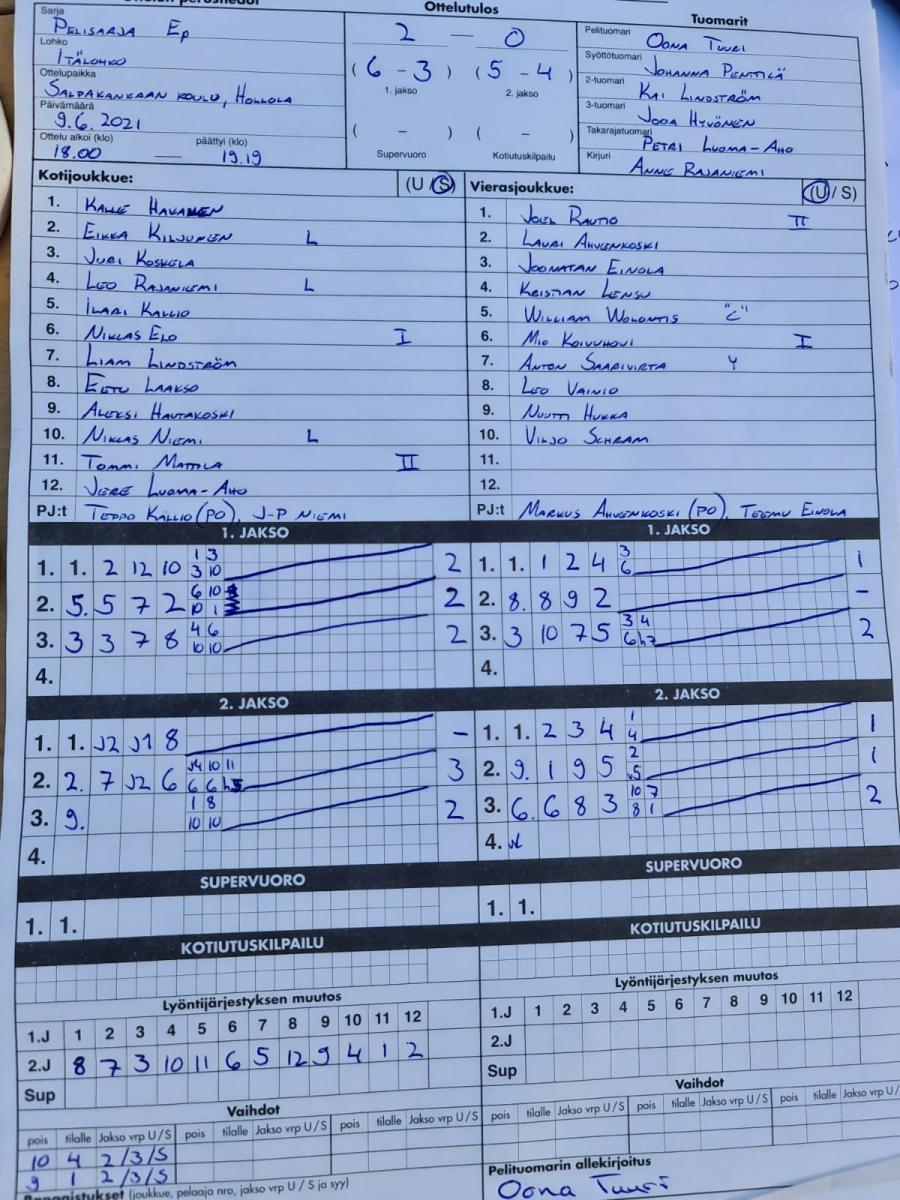 Ottelutulos
Tuomarit
Sarja
PELISARJA EP
Lohko
ITÄLOHKO
Ottelupaikka
SALPAKANKAAN KOULU, HOLLOLA
Päivämäärä
9.6.2021
Ottelu alkoi (klo) päättyi (klo)
18.00 — 19.19
2 — 0
(6 - 3) (5 - 4)
1. jakso 2. jakso
( - ) ( - )
Supervuoro Kotiutuskilpailu
Pelituomari OONA TUURI
Syöttötuomari JOHANNA PENTTILÄ
2-tuomari KAI LINDSTRÖM
3-tuomari JOOA HYVÖNEN
Takarajatuomari PETRI LUOMA-AHO
Kirjuri ANNE RAJANIEMI
Kotijoukkue: (U/S)
1. KALLE HAVANEN
2. EIKKA KILJUNEN L
3. JURI KOSKELA
4. LEO RAJANIEMI L
5. ILARI KALLIO
6. NIKLAS ELO I
7. LIAM LINDSTRÖM
8. EETU LAAKSO
9. ALEKSI HAUTAKOSKI
10. NIKLAS NIEMI L
11. TOMMI MATTILA II
12. JERE LUOMA-AHO
PJ:t TEPPO KALLIO (PO), J-P NIEMI
Vierasjoukkue: (U/S)
1. JOEL RAUTIO II
2. LAURI AHVENKOSKI
3. JOONATAN EINOLA
4. KRISTIAN LENSU
5. WILLIAM WOLONTIS "C"
6. MIO KOIVUHOVI I
7. ANTON SAARIVIRTA Y
8. LEO VAINIO
9. NUUTTI HUKKA
10. VILJO SCHRAM
11.
12.
PJ:t MARKUS AHVENKOSKI (PO), TEEMU EINOLA
1. JAKSO
1. 1. 2 12 10 1 3 2
3 10
2. 5. 5 7 2 6 10 2
10 1
3. 3 3 7 8 4 6 2
10 10
4.
1. JAKSO
1. 1. 1 2 4 3 1
6
2. 8. 8 9 2 –
3. 3 10 7 5 3 4 2
6 h7
4.
2. JAKSO
1. 1. J2 J1 8 –
2. 2. 7 J2 6 J4 10 11 3
6 6 h5
3. 9. 1 8 2
10 10
4.
2. JAKSO
1. 1. 2 3 4 1 1
4
2. 9. 1 9 5 2 1
v5
3. 6. 6 8 3 10 7 2
8 1
4.
SUPERVUORO
1. 1.
SUPERVUORO
1. 1.
KOTIUTUSKILPAILU
KOTIUTUSKILPAILU
Lyöntijärjestyksen muutos
1.J 1 2 3 4 5 6 7 8 9 10 11 12
2.J 8 7 3 10 11 6 5 12 9 4 1 2
Sup
Lyöntijärjestyksen muutos
1.J 1 2 3 4 5 6 7 8 9 10 11 12
2.J
Sup
Vaihdot
pois tilalle Jakso vrp U/S pois tilalle Jakso vrp U/S pois tilalle Jakso vrp U/S
10 4 2/3/S
9 1 2/3/S
Vaihdot
pois tilalle Jakso vrp U/S pois tilalle Jakso vrp U/S pois tilalle Jakso vrp U/S
(joukkue, pelaaja nro, jakso vrp U / S ja syy)
Pelituomarin allekirjoitus
Oona Tuuri